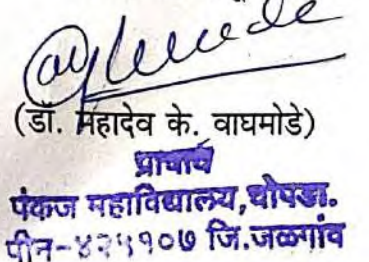 (डॉ. महादेव के. वाघमोडे)
प्राचार्य
पंकज महाविद्यालय, चोपडा.
पीन-४२५१०७ जि.जळगांव